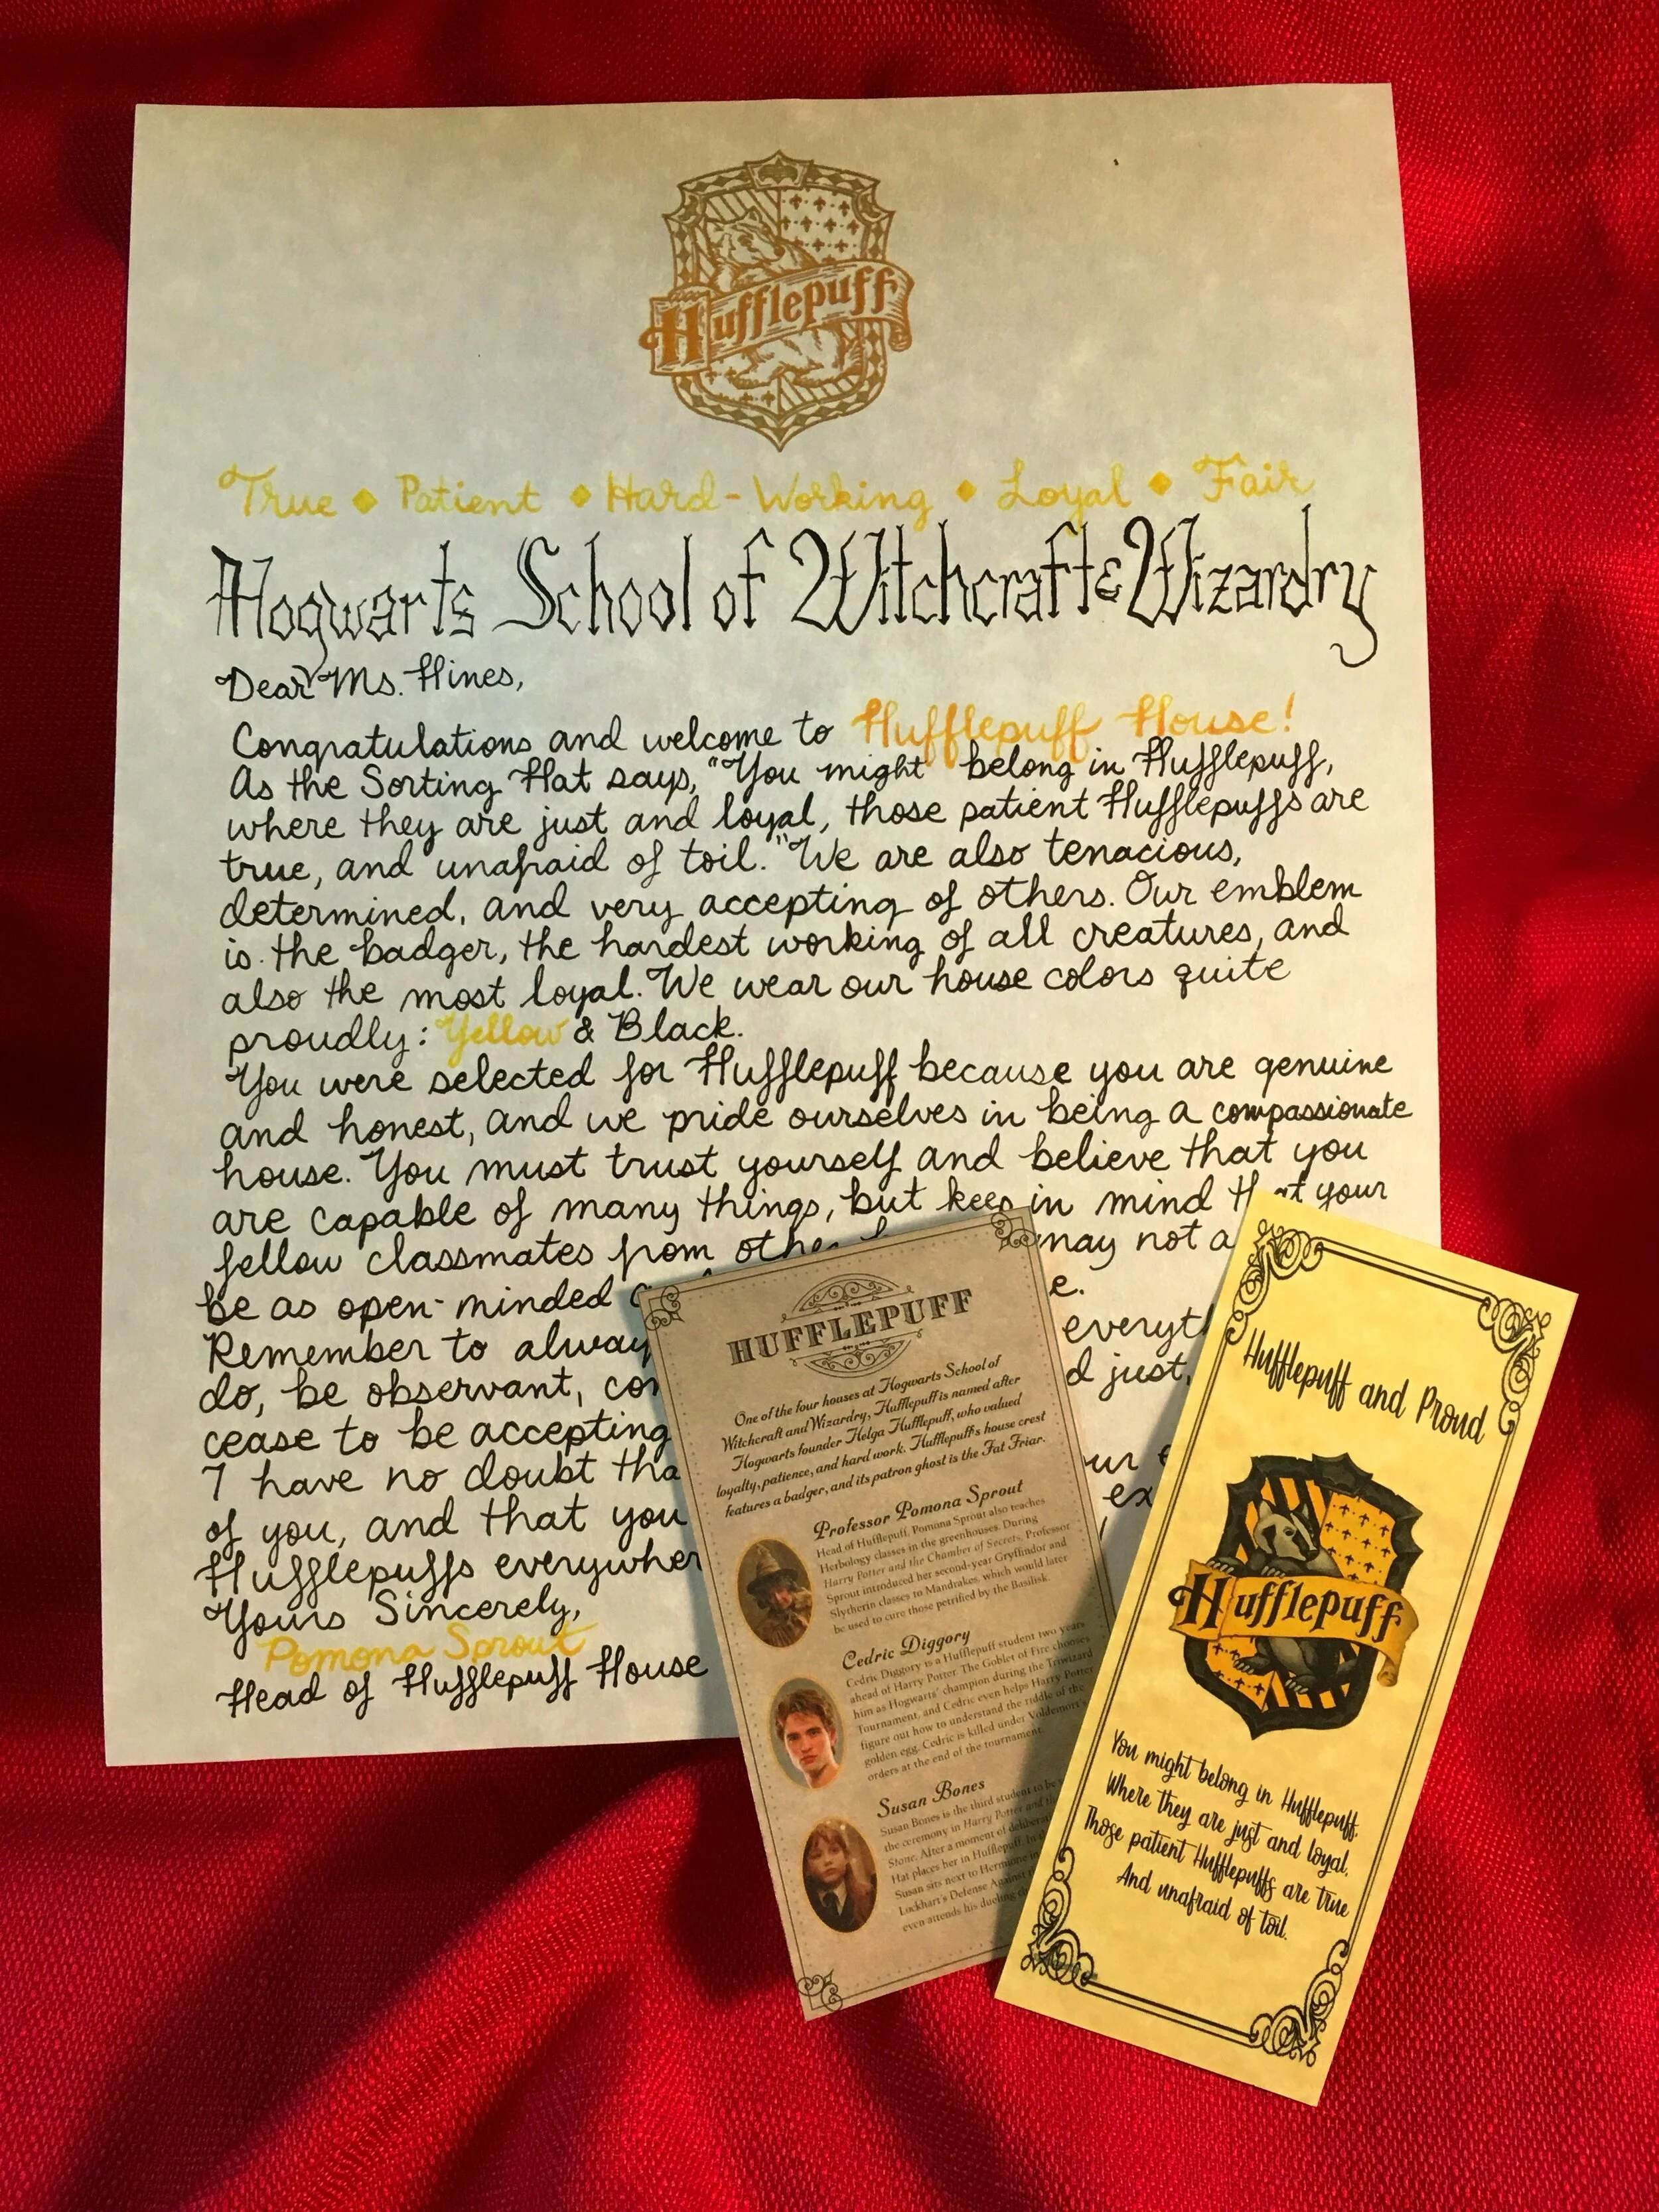 Hufflepuff
True ◆ Patient ◆ Hard-Working ◆ Loyal ◆ Fair
Hogwarts School of Witchcraft & Wizardry
Dear Ms. Hines,
Congratulations and welcome to Hufflepuff House!
As the Sorting Hat says, "You might belong in Hufflepuff,
where they are just and loyal, those patient Hufflepuffs are
true, and unafraid of toil." We are also tenacious,
determined, and very accepting of others. Our emblem
is the badger, the hardest working of all creatures, and
also the most loyal. We wear our house colors quite
proudly: Yellow & Black.
You were selected for Hufflepuff because you are genuine
and honest, and we pride ourselves in being a compassionate
house. You must trust yourself and believe that you
are capable of many things, but keep in mind that your
fellow classmates from other may not a
be as open-minded e.
Remember to alway everyt
do, be observant, con d just,
cease to be accepting
I have no doubt tha ur
of you, and that you ex
Hufflepuffs everywher
Yours Sincerely,
Pomona Sprout
Head of Hufflepuff House
HUFFLEPUFF
One of the four houses at Hogwarts School of
Witchcraft and Wizardry, Hufflepuff is named after
Hogwarts founder Helga Hufflepuff, who valued
loyalty, patience, and hard work. Hufflepuff's house crest
features a badger, and its patron ghost is the Fat Friar.
Professor Pomona Sprout
Head of Hufflepuff, Pomona Sprout also teaches
Herbology classes in the greenhouses. During
Harry Potter and the Chamber of Secrets, Professor
Sprout introduced her second-year Gryffindor and
Slytherin classes to Mandrakes, which would later
be used to cure those petrified by the Basilisk.
Cedric Diggory
Cedric Diggory is a Hufflepuff student two years
ahead of Harry Potter. The Goblet of Fire chooses
him as Hogwarts' champion during the Triwizard
Tournament, and Cedric even helps Harry Potter
figure out how to understand the riddle of the
golden egg. Cedric is killed under Voldemort's
orders at the end of the tournament.
Susan Bones
Susan Bones is the third student to be
the ceremony in Harry Potter and th
Stone. After a moment of deliber
Hat places her in Hufflepuff. In
Susan sits next to Hermione
Lockhart's Defense Against
even attends his dueling
Hufflepuff and Proud
Hufflepuff
You might belong in Hufflepuff.
Where they are just and loyal.
Those patient Hufflepuffs are true
And unafraid of toil.